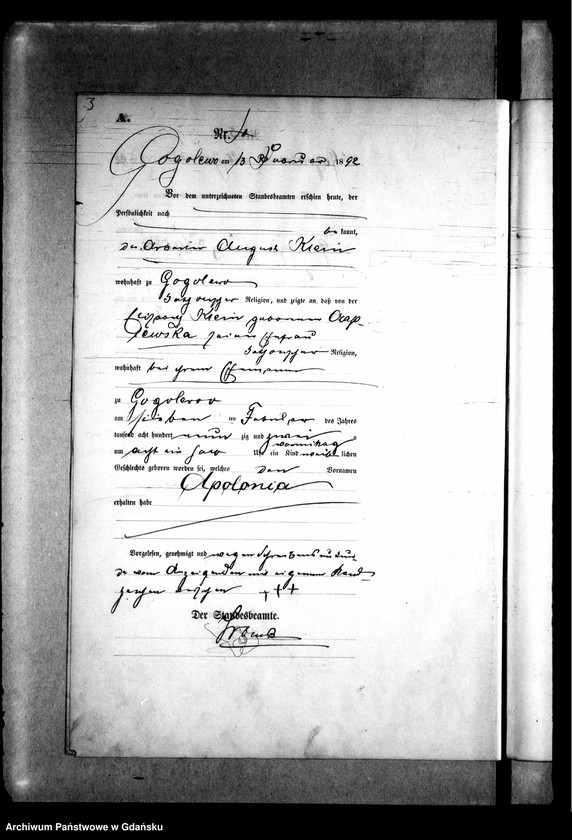 3
A.
Nr.
Gogolewo am 13 Februar 1892
Vor dem unterzeichneten Standesbeamten erschien heute, der
Persönlichkeit nach
be kannt,
der Arbeiter August Klein
wohnhaft zu Gogolewo
katholischer Religion, und zeigte an, daß von der
Klein geborenen
seiner Ehefrau
katholischer Religion,
wohnhaft bei ihrem Ehemanne
zu Gogolewo
am sieben ten Februar des Jahres
tausend acht hundert neun zig und zwei
Vormittags
um acht ein halb Uhr ein Kind weib lichen
Geschlechts geboren worden sei, welches den Vornamen
Apolonia
erhalten habe
Vorgelesen, genehmigt und wegen Schreibensunkun
de vom Anzeigenden mit eigenem Hand
zeichen versehen +++
Der Standesbeamte.
Archiwum Państwowe w Gdańsku